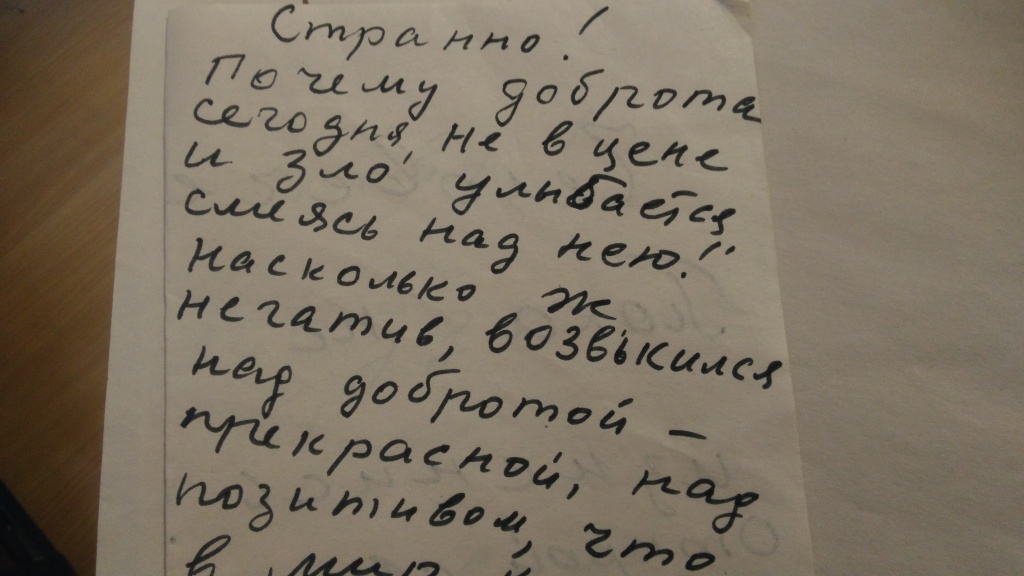 Странно!
Почему доброта
сегодня, не в цене
и зло, улыбается
смеясь над нею!
Насколько ж
негатив, возвыкился
над добротой –
прекрасной, над
позитивом, что
в мир